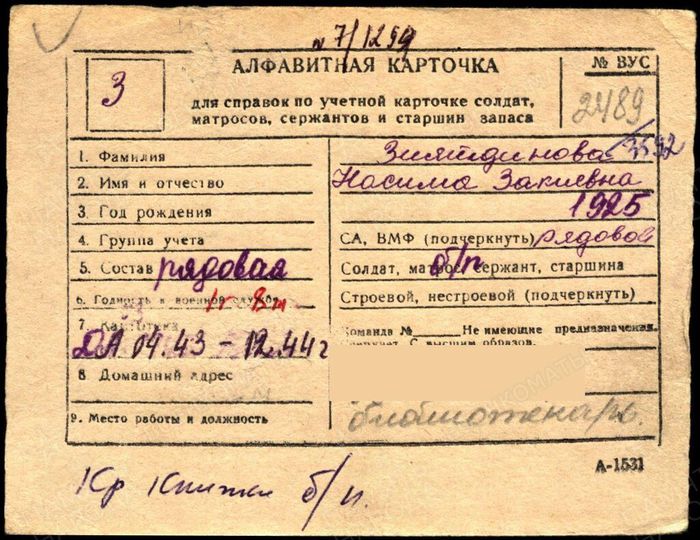 7/1259
АЛФАВИТНАЯ КАРТОЧКА
№ ВУС
З
2489
для справок по учетной карточке солдат,
матросов, сержантов и старшин запаса
1. Фамилия Зиятдинова
2. Имя и отчество Насима Закиевна
3. Год рождения 1925
4. Группа учета СА, ВМФ (подчеркнуть) рядовой
5. Состав рядовая Солдат, матрос, сержант, старшина
б/п
6. Годность к военной службе Строевой, нестроевой (подчеркнуть)
7. Картотека Команда № Не имеющие предназначения
СА 04.43 - 12.44 г
8. Домашний адрес
9. Место работы и должность библиотекарь.
А-1531
Кр книжки б/н.